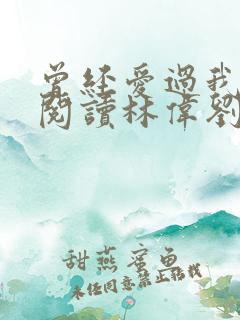 曾經愛過我
閱讀林偉劉
甜燕蜜魚
未经同意禁止搭我